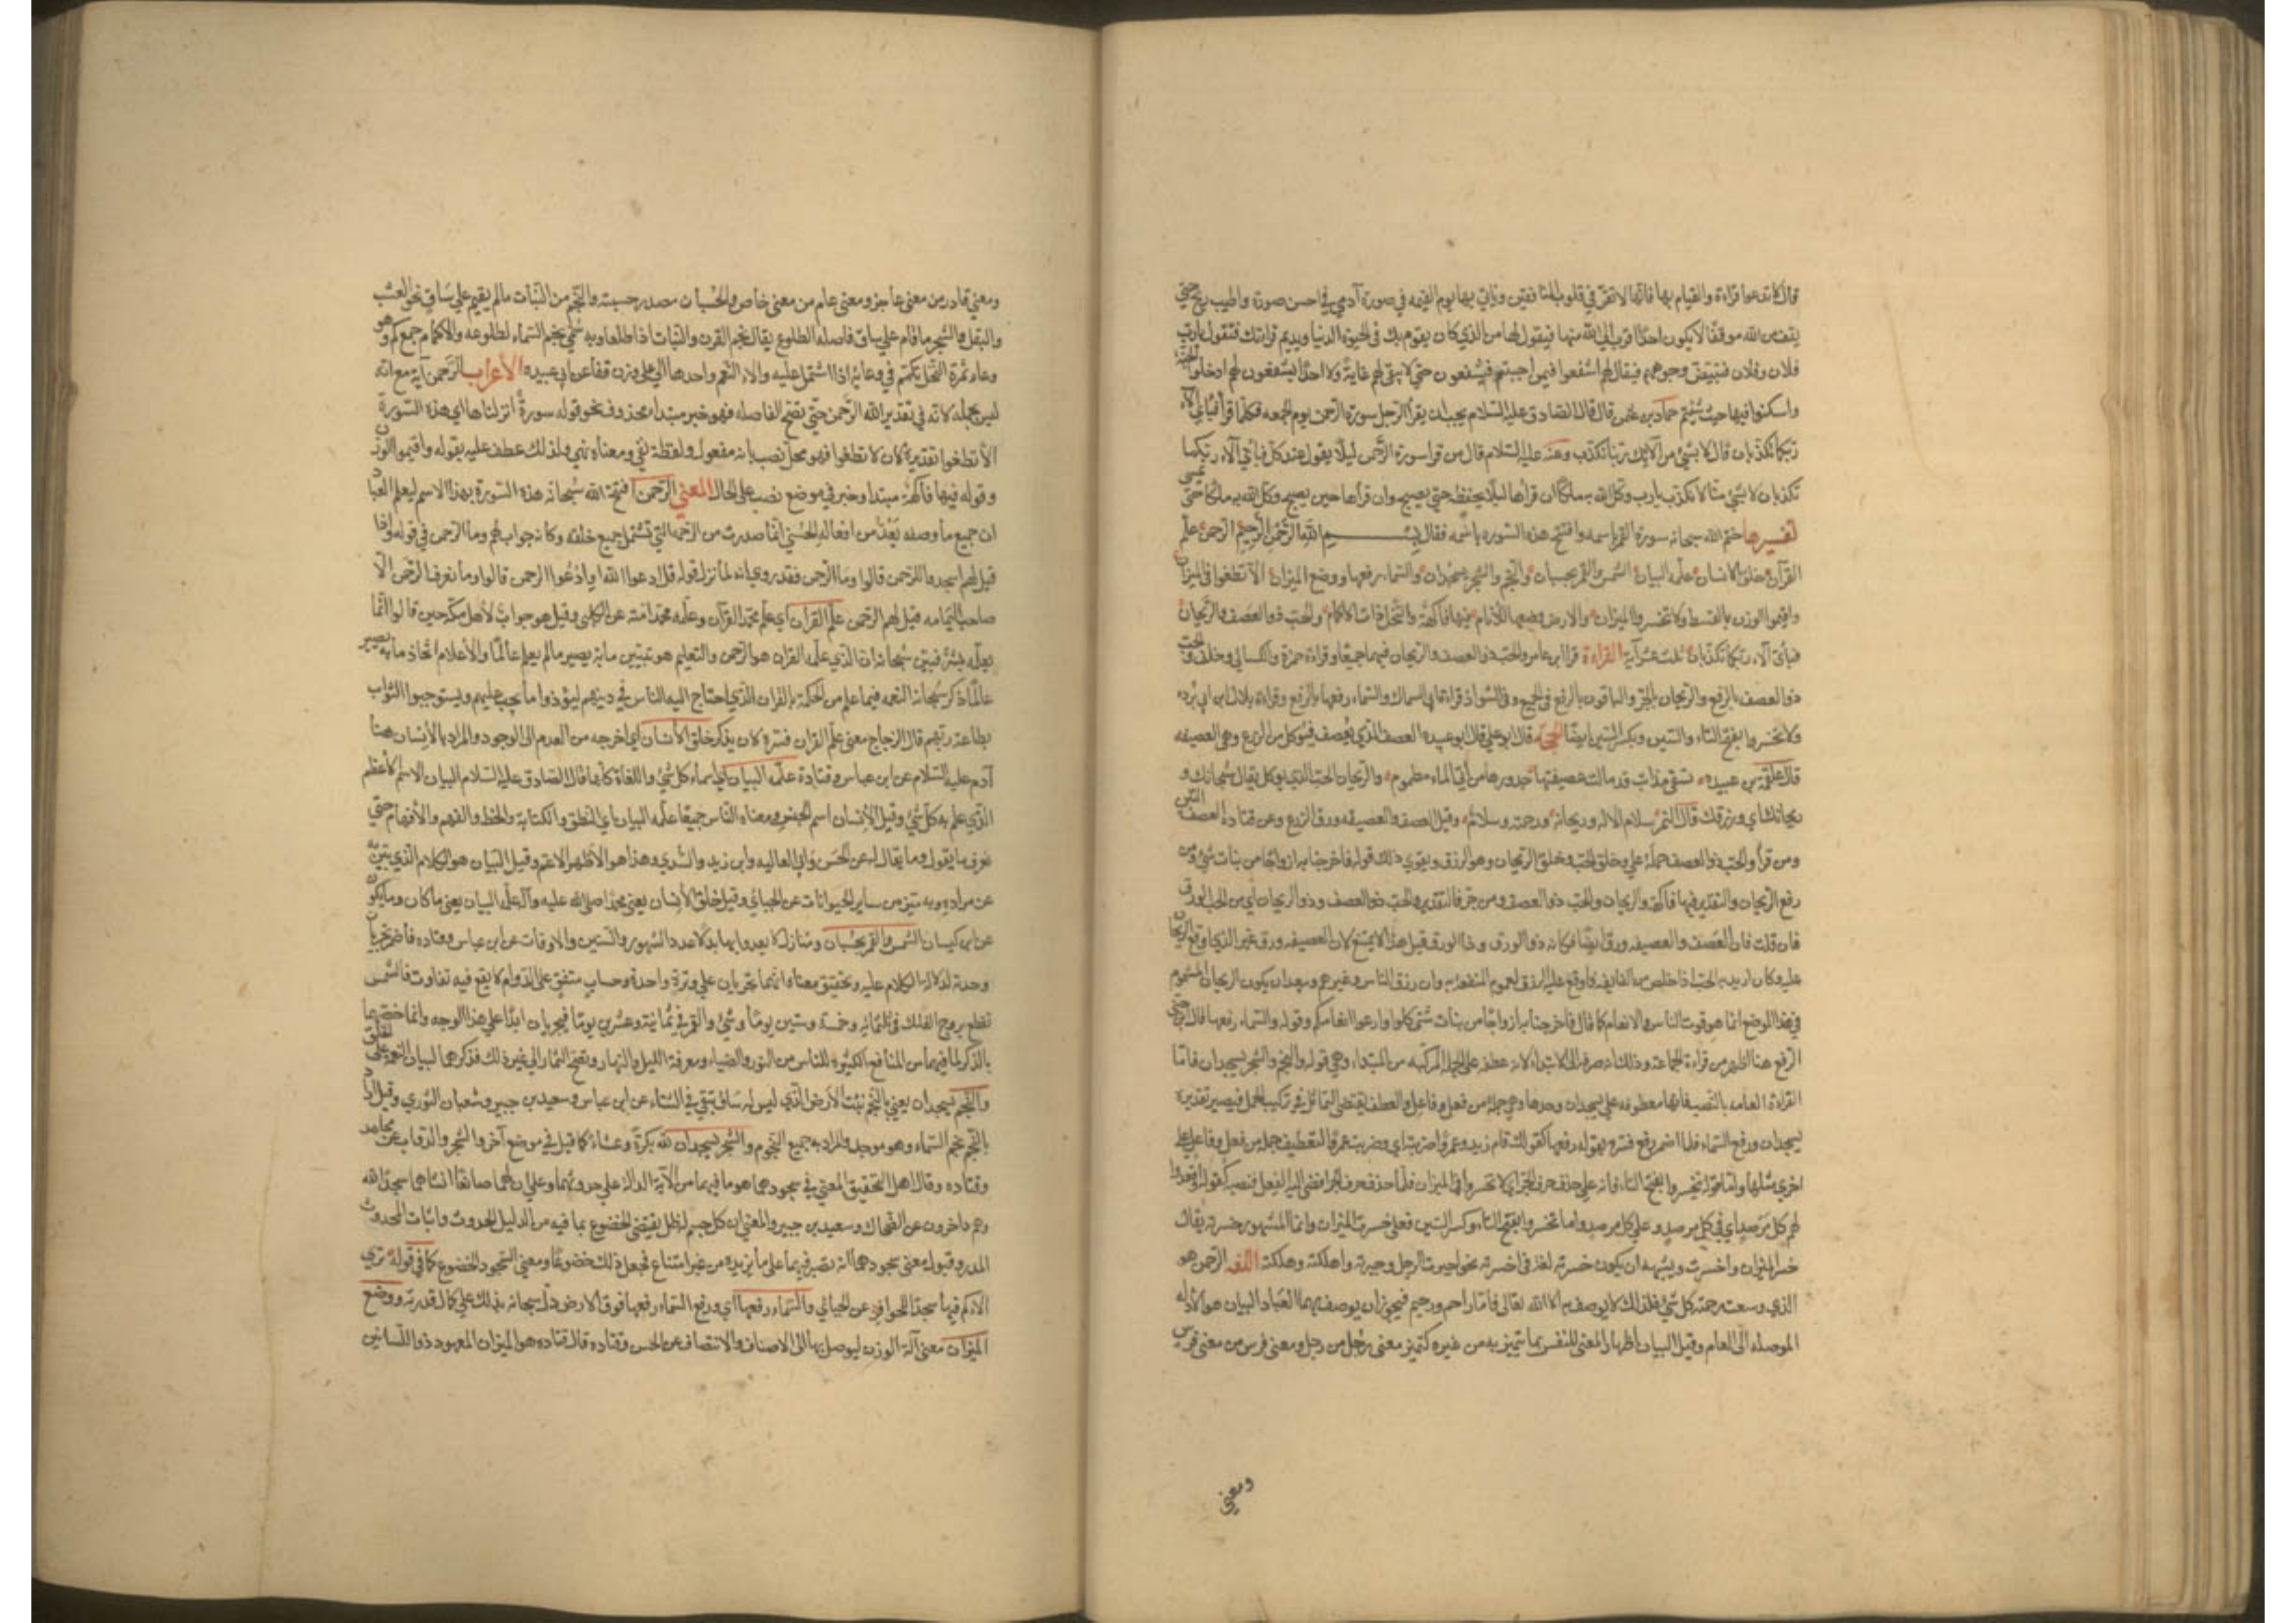 قال لا تدعوا قراءة والقيام بها فانها لا تقر في قلوب المنافقين وتاتي بها يوم القيمه في صورة آدمي في احسن صورة واطيب ريح حتى
يقف من الله موقفا لا يكون احد اقرب الي الله منها فيقول لها من الذي كان يقوم بك في الحيوة الدنيا ويديم قراءتك فتقول يا رب
فلان وفلان فتبيض وجوههم فيقال لهم اشفعوا فيمن احببتم فيشفعون حتي لا يبقي لهم غاية ولا احد يشفعون لهم ادخلوا الجنة
واسكنوا فيها حيث شئتم حماد بن عثمن قال قال الصادق عليه السلام يجب ان يقرأ الرجل سورة الرحمن يوم الجمعه فكلما قرأ فباي الاء
ربكما تكذبان قال لا بشي من آلائك ربنا نكذب وعنه عليه السلام قال من قرا سورة الرحمن ليلا يقول عند كل فبأي آلاء ربكما
تكذبان لا بشي من الآئك يا رب وكل الله به ملكا ان قرأها ليلا يحفظه حتي يصبح وان قرأها حين يصبح وكل الله به ملكا حتى يمسي
تفسيرها ختم الله سبحانه سورة القمر باسمه وافتتح هذه السورة باسمه فقال بسم الله الرحمن الرحيم الرحمن علم
القرآن خلق الانسان علمه البيان الشمس والقمر بحسبان والنجم والشجر يسجدان والسماء رفعها ووضع الميزان الا تطغوا في الميزان
واقيموا الوزن بالقسط ولا تخسروا الميزان والارض وضعها للانام فيها فاكهة والنخل ذات الاكمام والحب ذو العصف والريحان
فباي آلاء ربكما تكذبان ثلث عشر آية القراءة قرا ابن عامر والحب ذو العصف والريحان فيهما جميعا وقراءة حمزة والكسائي وخلف والحب
ذو العصف بالرفع والريحان بالجر والباقون بالرفع في الجميع وفي الشواذ قراءة ابي السماك والسماء رفعها بالرفع وقراءة بلال بن ابي برده
ولا تخسروا بفتح التاء والسين وبكسر السين ايضا الحجة قال ابو علي قال ابو عبيده العصف الذي يعصف فيؤكل من الزرع وهي العصيفه
قال علقمة بن عبيده تسقي مذانب قد مالت عصيفتها حدورها من أتي الماء مطموم والريحان الحب الذي يوكل يقال سبحانك و
ريحانك اي ورزقك قال النمر سلام الاله وريحانه ورحمته وسلام وقيل العصف والعصيفه ورق الزرع وعن قتادة العصف التبن
ومن قرأ والحب ذو العصف حمله علي وخلق الحب وخلق الريحان وهو الرزق ويقوي ذلك قوله فاخرجنا به ازواجا من نبات شتى ومن
رفع الريحان والتقدير فيها فاكهة والريحان والحب ذو العصف ومن جر فالتقدير والحب ذو العصف وذو الريحان اي من الحب الورق
فان قلت فان العصف والعصيفه ورق ايضا فكانه ذو الورق وذا الورق قيل هذا لا يمتنع لان العصيفه ورق غير الذي اوقع الريحان
عليه وكان اريد به الحب اذا خلص من لفايفه فاوقع عليه الرزق لعموم المنفعه به وان رزق الناس وغيرهم ويبعد ان يكون الريحان المشموم
في هذا الموضع انما هو قوت الناس والانعام كما قال فاخرجنا به ازواجا من نبات شتى كلوا وارعوا انعامكم وقوله والسماء رفعها قال ابن جني
الرفع هنا اظهر من قراءة الجماعة وذلك انه صرفه الي الابتداء لانه عطفه علي الجملة المركبه من المبتداء وهي قوله والنجم والشجر يسجدان فاما
القراءة العامه بالنصب فانها معطوفه علي يسجدان وحدها وهي جملة من فعل وفاعل والعطف يقتضي التماثل في تركيب الجمل فيصير تقديره
يسجدان ورفع السماء فلما اضمر رفع فسره بقوله رفعها كقولك قام زيد وعمرا ضربته اي وضربت عمرا لتعطف جملة من فعل وفاعل علي
اخري مثلها واما قوله تخسروا بفتح التاء فانه علي حذف حرف الجر اي لا تخسروا في الميزان فلما حذف حرف الجر افضي اليه الفعل فنصبه كقوله واقعدوا
لهم كل مرصد اي في كل مرصد وعلي كل مرصد واما تخسروا بفتح التاء وكسر السين فعلي خسرت الميزان وانما المشهور خسرته يقال
خسر الميزان واخسرته ويشبه ان يكون خسرته لغة في اخسرته نحو اجبرت الرجل وجبرته واهلكته وهلكته اللغه الرحمن هو
الذي وسعت رحمته كل شي فلذلك لا يوصف به الا الله تعالى فاما راحم ورحيم فيجوز ان يوصف بهما العباد البيان هو الادله
الموصله الى العام وقيل البيان اظهار المعني للنفس بما يتميز به من غيره كتميز معني رجل من رجل ومعني فرس من معني فرس
ومعني
ومعني قادر من معني عاجز ومعني عام من معني خاص والحسبان مصدر حسبته والنجم من النبات ما لم يقم علي ساق نحو العشب
والبقل والشجر ما قام علي ساق فاصله الطلوع يقال نجم القرن والنبات اذا طلعا وبه سمي نجم السماء لطلوعه والاكمام جمع كم وهو
وعاء ثمرة النخل يكتم في وعائه اذا اشتمل عليه والاء النعم واحدها الي علي وزن قفا عن ابي عبيده الاعراب الرحمن آية مع انه
ليس بجمله لانه في تقدير الله الرحمن حتي تفتح الفاصله فهو خبر مبتدا محذوف نحو قوله سورة انزلناها اي هذه السورة
الا تطغوا تقديره لان لا تطغوا فهو محل نصب بانه مفعول ولفظة نفي ومعناه نهي ولذلك عطف عليه بقوله واقيموا الوزن
وقوله فيها فاكهة مبتدا وخبر في موضع نصب على الحال المعني الرحمن افتتح الله سبحانه هذه السورة بهذا الاسم ليعلم العباد
ان جميع ما وصفه بعد من افعاله الحسني انما صدرت من الرحمه التي تشتمل جميع خلقه وكانه جواب لهم وما الرحمن في قوله واذا
قيل لهم اسجدوا للرحمن قالوا وما الرحمن فقد روي انه لما نزل قوله قل ادعوا الله او ادعوا الرحمن قالوا وما نعرف الرحمن الا
صاحب اليمامه فقيل لهم الرحمن علم القرآن اي علم محمدا القرآن وعلمه محمد امته عن الكلبي وقيل هو جواب لاهل مكة حين قالوا انما
يعلمه بشر فبين سبحانه ان الذي علمه القران هو الرحمن والتعليم هو تبيين ما به يصير ما لم يعلم عالما والاعلام اتخاذ ما به يصير
عالما ذكر سبحانه النعمه فيما علم من الحكمة بالقران الذي احتاج اليه الناس في دينهم ليؤدوا ما يجب عليهم ويستوجبوا الثواب
بطاعة ربهم قال الزجاج معني علم القران فسره لان يذكر خلق الانسان اي اخرجه من العدم الى الوجود والمراد بالانسان هنا
آدم عليه السلام عن ابن عباس وقتادة علمه البيان اي اسماء كل شي واللغاة كلها قال الصادق عليه السلام البيان الاسم الاعظم
الذي علم به كل شي وقيل الانسان اسم الجنس ومعناه الناس جميعا علمه البيان اي النطق والكتابة والخط والفهم والافهام حتي
يعرف ما يقول وما يقال له عن الحسن وابي العاليه وابن زيد والسدي وهذا هو الاظهر الاعم وقيل البيان هو الكلام الذي يبين به
عن مراده وبه يتميز من ساير الحيوانات عن الجبائي وقيل خلق الانسان يعني محمدا صلى الله عليه وآله علمه البيان يعني ما كان وما يكون
عن ابن كيسان الشمس والقمر بحسبان ومنازل لا يعدوانها يدلا عدد الشهور والسنين والاوقات عن ابن عباس وقتاده فاضمر يجريان
وحذفه لدلالة الكلام عليه وتحقيق معناه انهما يجريان علي وتيرة واحدة وحساب متفق على الدوام لا يقع فيه تفاوت فالشمس
تقطع بروج الفلك في ثلثمائه وخمسة وستين يوما وشي والقمر في ثمانية وعشرين يوما فيجريان ابدا علي هذا الوجه وانما خصهما
بالذكر لما فيهما من المنافع الكثيرة للناس من النور والضياء ومعرفة الليل والنهار ونضج الثمار الي غير ذلك فذكرهما لبيان النعمة على الخلق
والنجم يسجدان يعني بالنجم نبت الارض الذي ليس له ساق تبقي في الشتاء عن ابن عباس وسعيد بن جبير وسفيان الثوري وقيل اراد
بالنجم نجم السماء وهو موحد والمراد به جميع النجوم والشجر يسجدان لله بكرة وعشاء كما قيل في موضع آخر والشجر والدواب عن مجاهد
وقتاده وقال اهل التحقيق المعني في سجودهما هو ما فيهما من الآية الدالة علي حدوثهما وعلي ان لهما صانعا انشاهما سجدا لله
وهم داخرون عن الضحاك وسعيد بن جبير والمعني ان كل جسم له ظل يقتضي الخضوع بما فيه من الدليل الحدوث واثبات المحدوث
المدبر وقيل معني سجودهما انه يتصرف فيهما على ما يريده من غير امتناع فجعل ذلك خضوعا ومعني السجود الخضوع كما في قوله تري
الاكم فيها سجدا للحوافر عن الجبائي والسماء رفعها اي ورفع السماء رفعها فوق الارض دل سبحانه بذلك علي كمال قدرته ووضع
الميزان معني آلة الوزن ليوصل بها الى الانصاف والانتصاف عن الحسن وقتاده قال قتاده هو الميزان المعهود ذو اللسانين